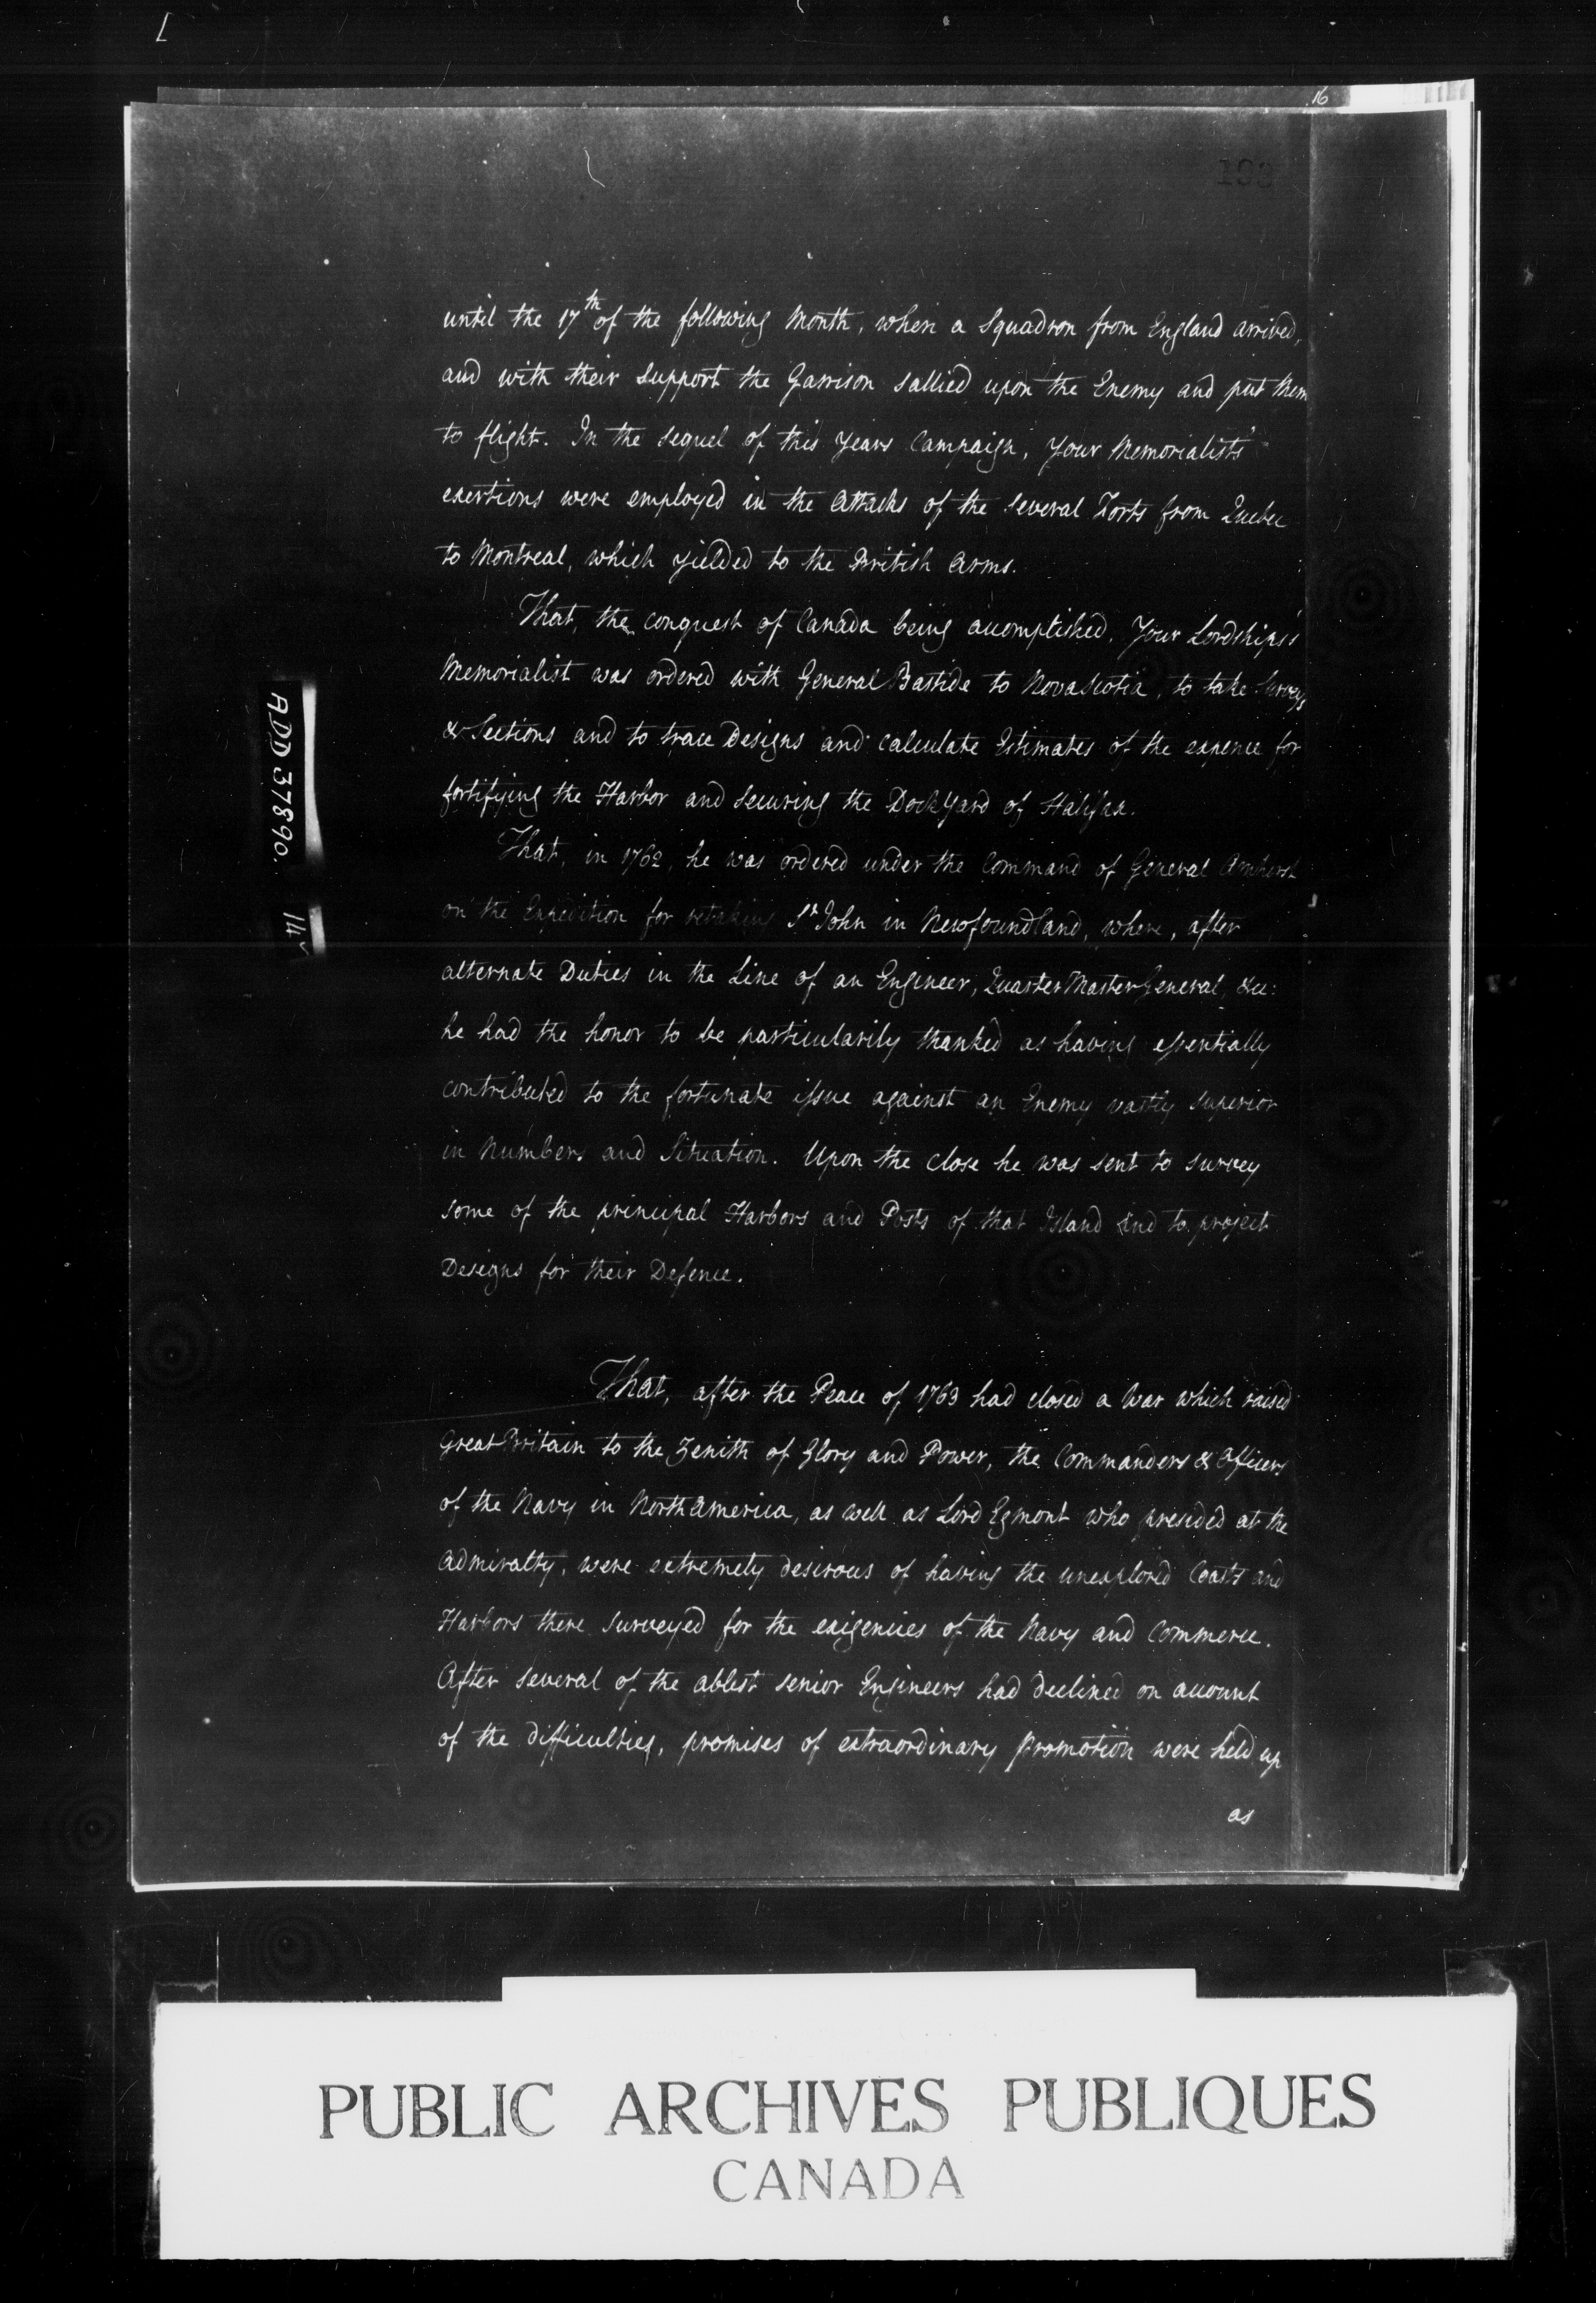 16
until the 17th of the following Month, when a Squadron from England arrived,
and with their Support the Garrison sallied upon the Enemy and put them
to flight. In the sequel of this Years Campaign, Your Memorialists'
exertions were employed in the Attacks of the several Forts from Quebec
to Montreal, which yielded to the British Arms.
That, the conquest of Canada being accomplished, Your Lordships's
Memorialist was ordered with General Bastide to NovaScotia, to take Surveys
& Sections and to trace Designs and calculate Estimates of the expence for
fortifying the Harbor and securing the DockYard of Halifax.
That, in 1762, he was ordered under the Command of General Amherst
on the Expedition for retaking St John in Newfoundland, where, after
alternate Duties in the Line of an Engineer, QuarterMasterGeneral, &c:
he had the honor to be particularily thanked as having essentially
contributed to the fortunate issue against an Enemy vastly superior
in Numbers and Situation. Upon the close he was sent to survey
some of the principal Harbors and Posts of that Island and to project
Designs for their Defence.
That, after the Peace of 1763 had closed a War which raised
Great Britain to the Zenith of Glory and Power, the Commanders & Officers
of the Navy in NorthAmerica, as well as Lord Egmont who presided at the
Admiralty, were extremely desirous of having the unexplored Coasts and
Harbors there surveyed for the exigencies of the Navy and Commerce.
After several of the ablest senior Engineers had declined on account
of the difficulties, promises of extraordinary Promotion were held up
as
ADD 37890. 14v
PUBLIC ARCHIVES PUBLIQUES
CANADA